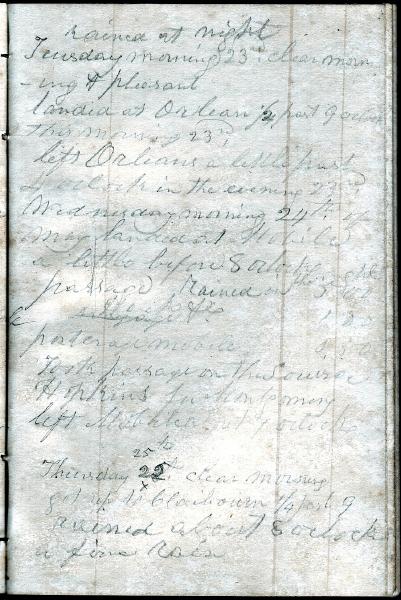 rained at night
Tuesday morning 23rd clear morn
-ing & pleasant
landed at Orlean 1/2 past 9 oclock
this morning 23rd
left Orleans a little past
4 oclock in the evening 23rd
Wednesday morning 24th of
May landed at Mobile
a little before 8 oclock
passage rained on the
porterage
Took passage on the
Hopkins for Montgomery
left Mobile at oclock
25th
Thursday 25 clear morning
got up to Claibourn 1/4 past 9
rained about 8 oclock
a fine Rain